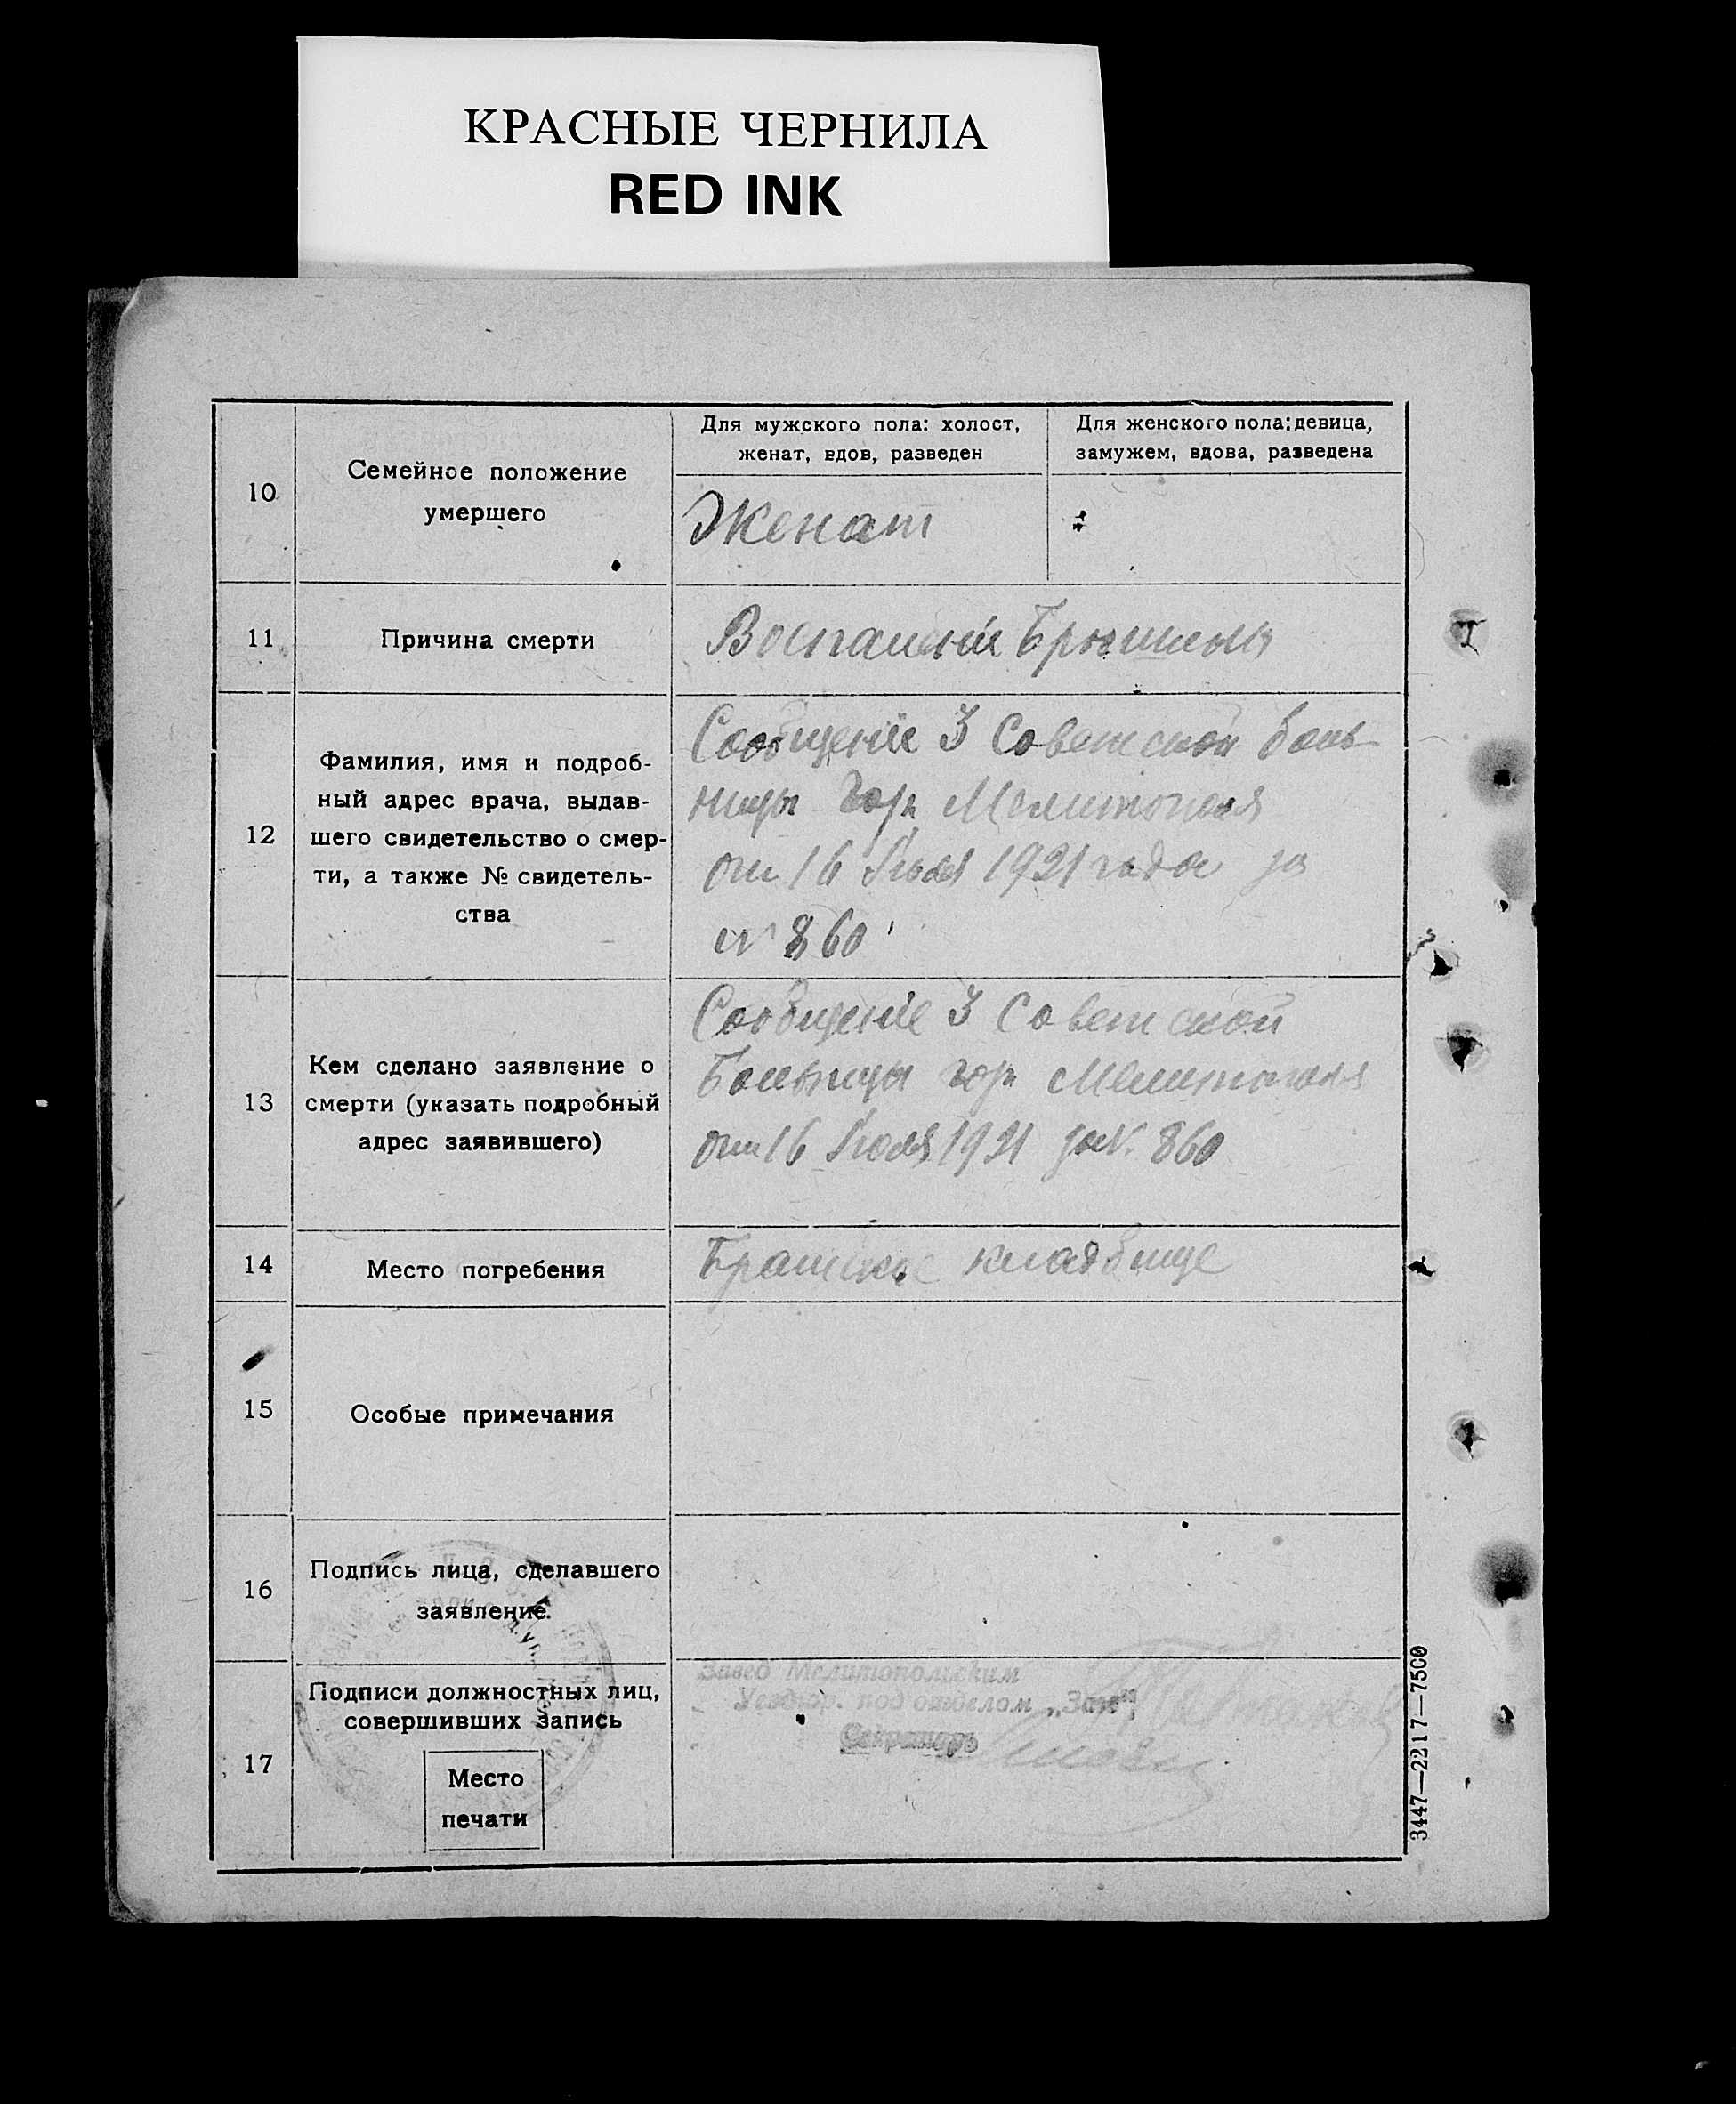 КРАСНЫЕ ЧЕРНИЛА
RED INK
10
Семейное положение
умершего
Для мужского пола: холост,
женат, вдов, разведен
Для женского пола: девица,
замужем, вдова, разведена
Женат
11
Причина смерти
Воспаленіи Брюшины
12
Фамилия, имя и подроб-
ный адрес врача, выдав-
шего свидетельство о смер-
ти, а также № свидетель-
ства
Сообщеніе 3 Советской боль-
ницы гор Мелитополя
от 16 Іюля 1921 года за
№ 860
13
Кем сделано заявление о
смерти (указать подробный
адрес заявившего)
Сообщеніе 3 Советской
Больницы гор Мелитополя
от 16 Іюля 1921 за №. 860
14
Место погребения
Братское кладбище
15
Особые примечания
16
Подпись лица, сделавшего
заявление.
17
Подписи должностных лиц,
совершивших запись
Место
печати
Завед Мелитопольским
под отделом „Загс"
Секретарь
3447—2217—7500